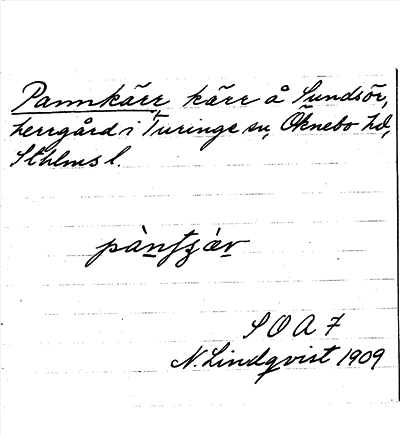 Pannkärr, kärr å Sundsör,
herrgård i Turinge sn, Öknebo hd,
Sthlms l.
pàntʃæ̀r
S O A 7
N. Lindqvist 1909